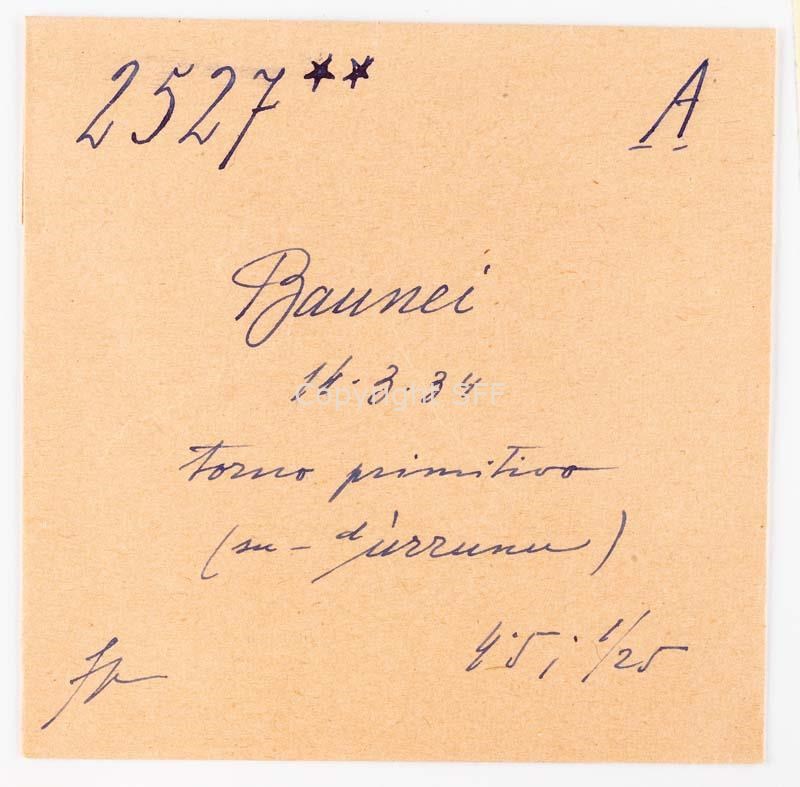 2527** A
Baunei
14.3.34
Copyright SFF
torno primitivo
(su - dúrrunu)
4.5; 1/25